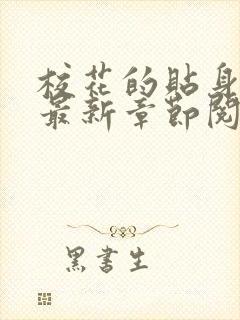 校花的貼身
最新章節閱
黑書生